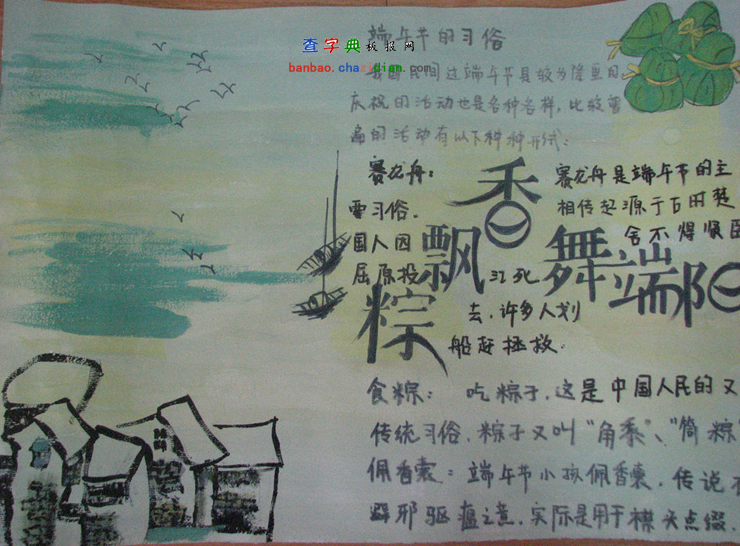 查字典板报网
端午节的习俗
banbao.chazidian.com
我国民间过端午节是较为隆重的
庆祝的活动也是各种各样,比较普
遍的活动有以下种种形式:
赛龙舟:
赛龙舟是端午节的主
要习俗.
相传起源于古时楚
国人因
舍不得贤臣
屈原投
江死
去,许多人划
船赶拯救.
粽飘香舞端阳
食粽: 吃粽子,这是中国人民的又
传统习俗.粽子又叫"角黍"、"筒粽"
佩香囊:端午节小孩佩香囊,传说
避邪驱瘟之意,实际是用于襟头点缀.